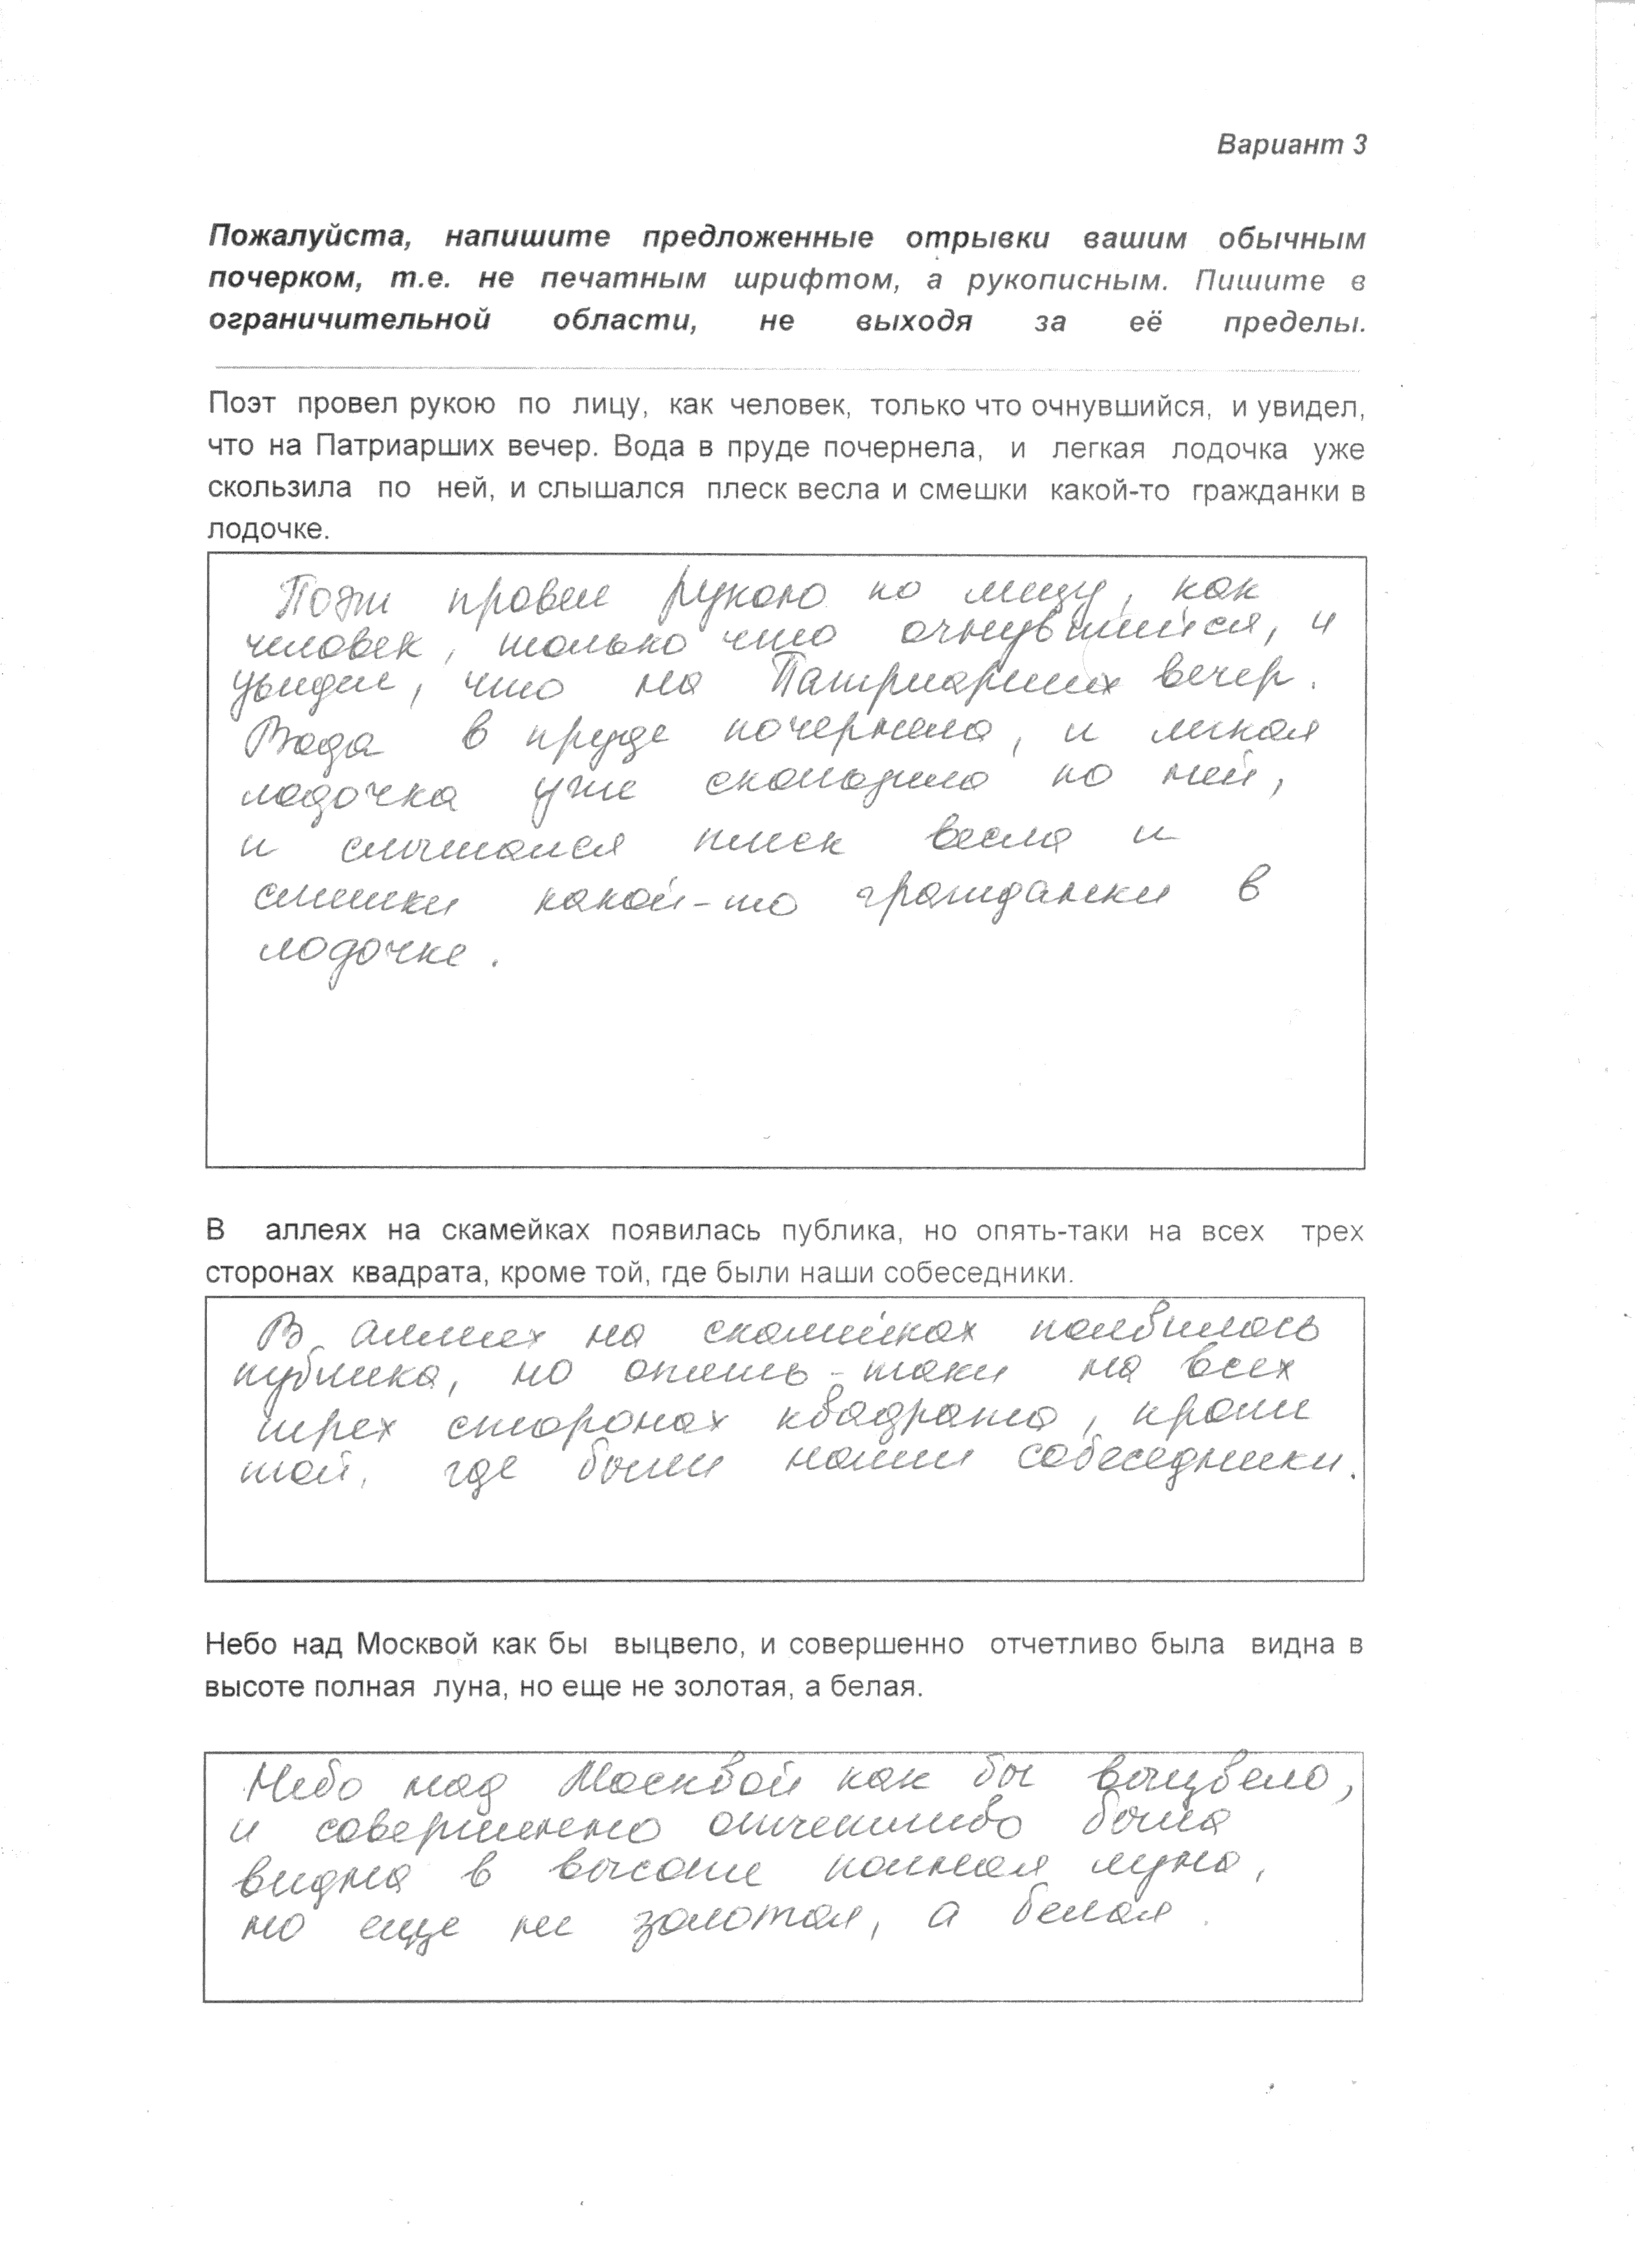 Вариант 3
Пожалуйста, напишите предложенные отрывки вашим обычным
почерком, т.е. не печатным шрифтом, а рукописным. Пишите в
ограничительной области, не выходя за её пределы.
Поэт провел рукою по лицу, как человек, только что очнувшийся, и увидел,
что на Патриарших вечер. Вода в пруде почернела, и легкая лодочка уже
скользила по ней, и слышался плеск весла и смешки какой-то гражданки в
лодочке.
Поэт провел рукою по лицу, как
человек, только что очнувшийся, и
увидел, что на Патриарших вечер.
Вода в пруде почернела, и легкая
лодочка уже скользила по ней,
и слышался плеск весла и
смешки какой-то гражданки в
лодочке.
В аллеях на скамейках появилась публика, но опять-таки на всех трех
сторонах квадрата, кроме той, где были наши собеседники.
В аллеях на скамейках появилась
публика, но опять-таки на всех
трех сторонах квадрата, кроме
той, где были наши собеседники.
Небо над Москвой как бы выцвело, и совершенно отчетливо была видна в
высоте полная луна, но еще не золотая, а белая.
Небо над Москвой как бы выцвело,
и совершенно отчетливо была
видна в высоте полная луна,
но еще не золотая, а белая.